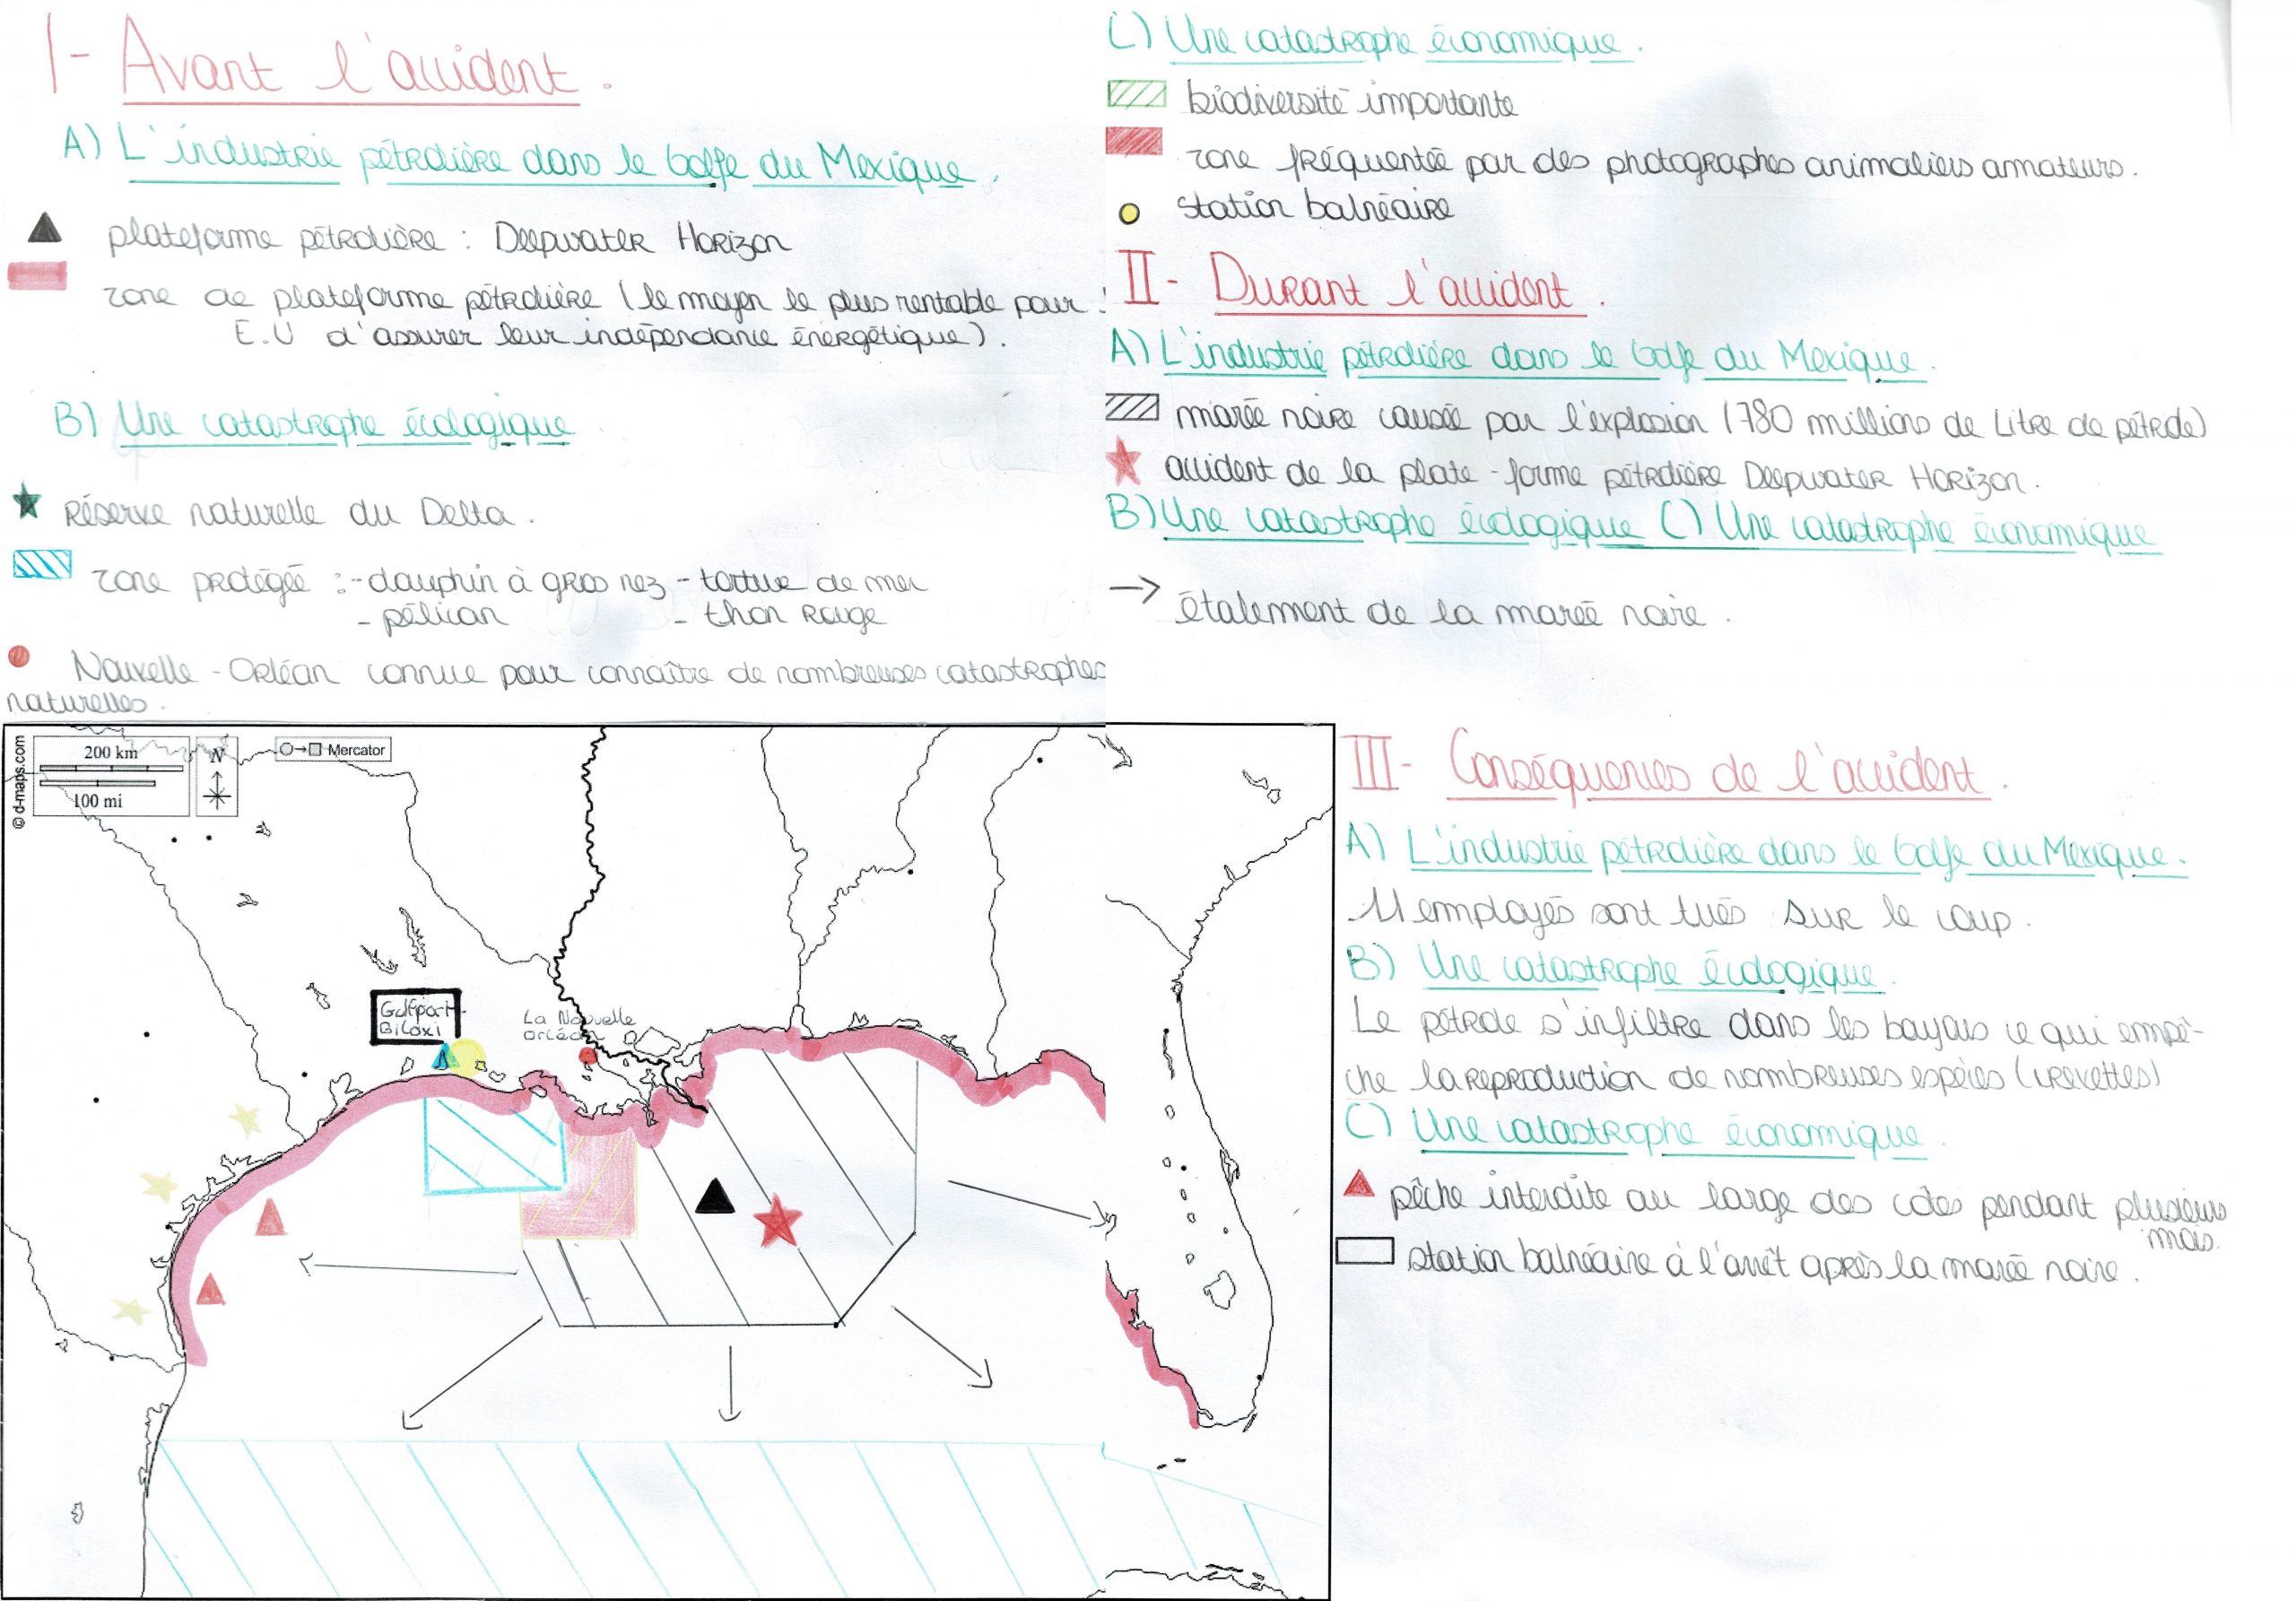 I- Avant l'accident.
A) L'industrie pétrolière dans le Golfe du Mexique.
plateforme pétrolière : Deepwater Horizon
zone de plateforme pétrolière (le moyen le plus rentable pour
E.U d'assurer leur indépendance énergétique).
B) Une catastrophe écologique
Réserve naturelle du Delta.
zone protégée : -dauphin à gros nez - tortue de mer
- pélican - thon rouge
Nouvelle-Orléan connue pour connaître de nombreuses catastrophes
naturelles.
C) Une catastrophe économique.
biodiversité importante
zone fréquentée par des photographes animaliers amateurs.
station balnéaire
II- Durant l'accident.
A) L'industrie pétrolière dans le Golfe du Mexique.
marée noire causée par l'explosion (780 millions de Litre de pétrole)
accident de la plate-forme pétrolière Deepwater Horizon.
B) Une catastrophe écologique C) Une catastrophe économique
étalement de la marée noire.
© d-maps.com
200 km
100 mi
N
Mercator
Gulfport-
Biloxi
La Nouvelle
Orléan
III- Conséquences de l'accident.
A) L'industrie pétrolière dans le Golfe du Mexique.
11 employés sont tués sur le coup.
B) Une catastrophe écologique.
Le pétrole s'infiltre dans les bayous ce qui empê-
che la reproduction de nombreuses espèces (crevettes)
C) Une catastrophe économique.
pêche interdite au large des côtes pendant plusieurs
mois.
station balnéaire à l'arrêt après la marée noire.